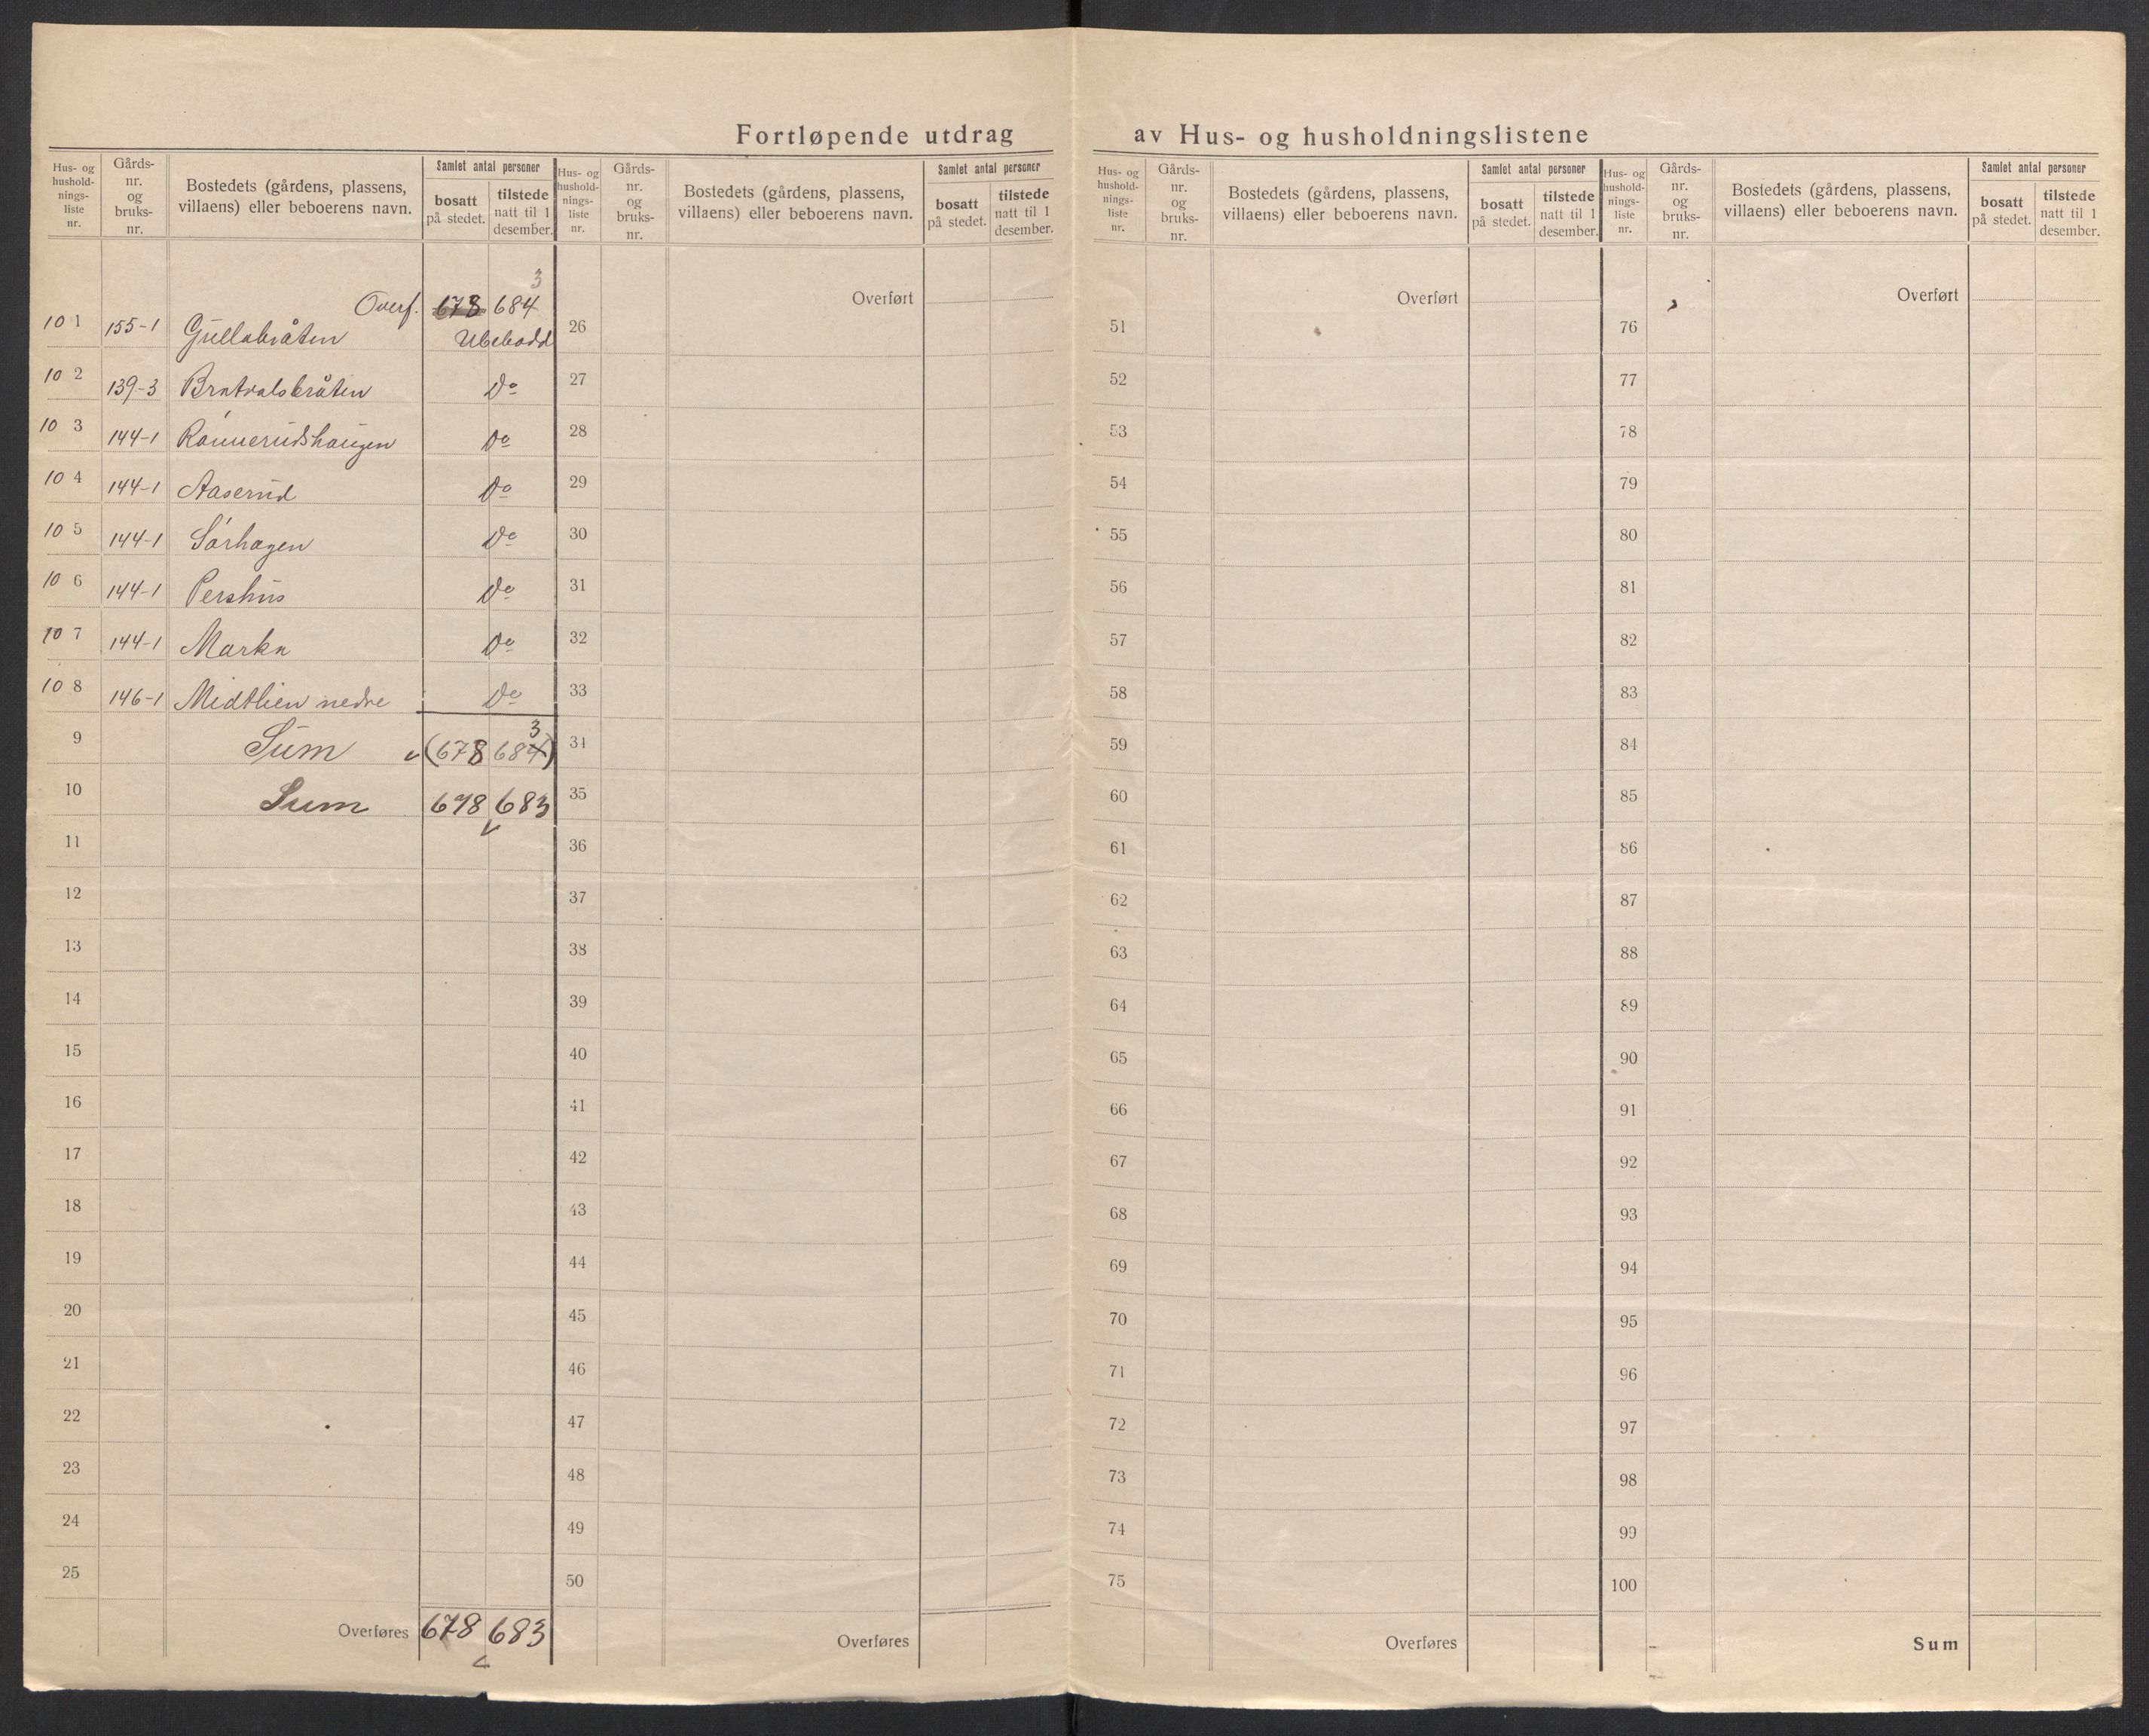 Fortløpende utdrag av Hus- og husholdningslistene
Hus- og hushold- nings- liste nr.
Gårds- nr. og bruks- nr.
Bostedets (gårdens, plassens, villaens) eller beboerens navn.
Samlet antal personer
bosatt på stedet.
tilstede natt til 1 desember.
Hus- og hushold- nings- liste nr.
Gårds- nr. og bruks- nr.
Bostedets (gårdens, plassens, villaens) eller beboerens navn.
Samlet antal personer
bosatt på stedet.
tilstede natt til 1 desember.
Hus- og hushold- nings- liste nr.
Gårds- nr. og bruks- nr.
Bostedets (gårdens, plassens, villaens) eller beboerens navn.
Samlet antal personer
bosatt på stedet.
tilstede natt til 1 desember.
Hus- og hushold- nings- liste nr.
Gårds- nr. og bruks- nr.
Bostedets (gårdens, plassens, villaens) eller beboerens navn.
Samlet antal personer
bosatt på stedet.
tilstede natt til 1 desember.
3
Overf. 678 684
10 1 155-1 Gullabråten Ubebodd
10 2 139-3 Bratvalsbråten Do
10 3 144-1 Rønnerudshaugen Do
10 4 144-1 Aaserud Do
10 5 144-1 Sørhagen Do
10 6 144-1 Pershus Do
10 7 144-1 Marka Do
10 8 146-1 Midtlien nedre Do
3
9 Sum (678 684)
10 Sum 678 683
11
12
13
14
15
16
17
18
19
20
21
22
23
24
25
Overføres 678 683
Overført
26
27
28
29
30
31
32
33
34
35
36
37
38
39
40
41
42
43
44
45
46
47
48
49
50
Overføres
Overført
51
52
53
54
55
56
57
58
59
60
61
62
63
64
65
66
67
68
69
70
71
72
73
74
75
Overføres
Overført
76
77
78
79
80
81
82
83
84
85
86
87
88
89
90
91
92
93
94
95
96
97
98
99
100
Sum